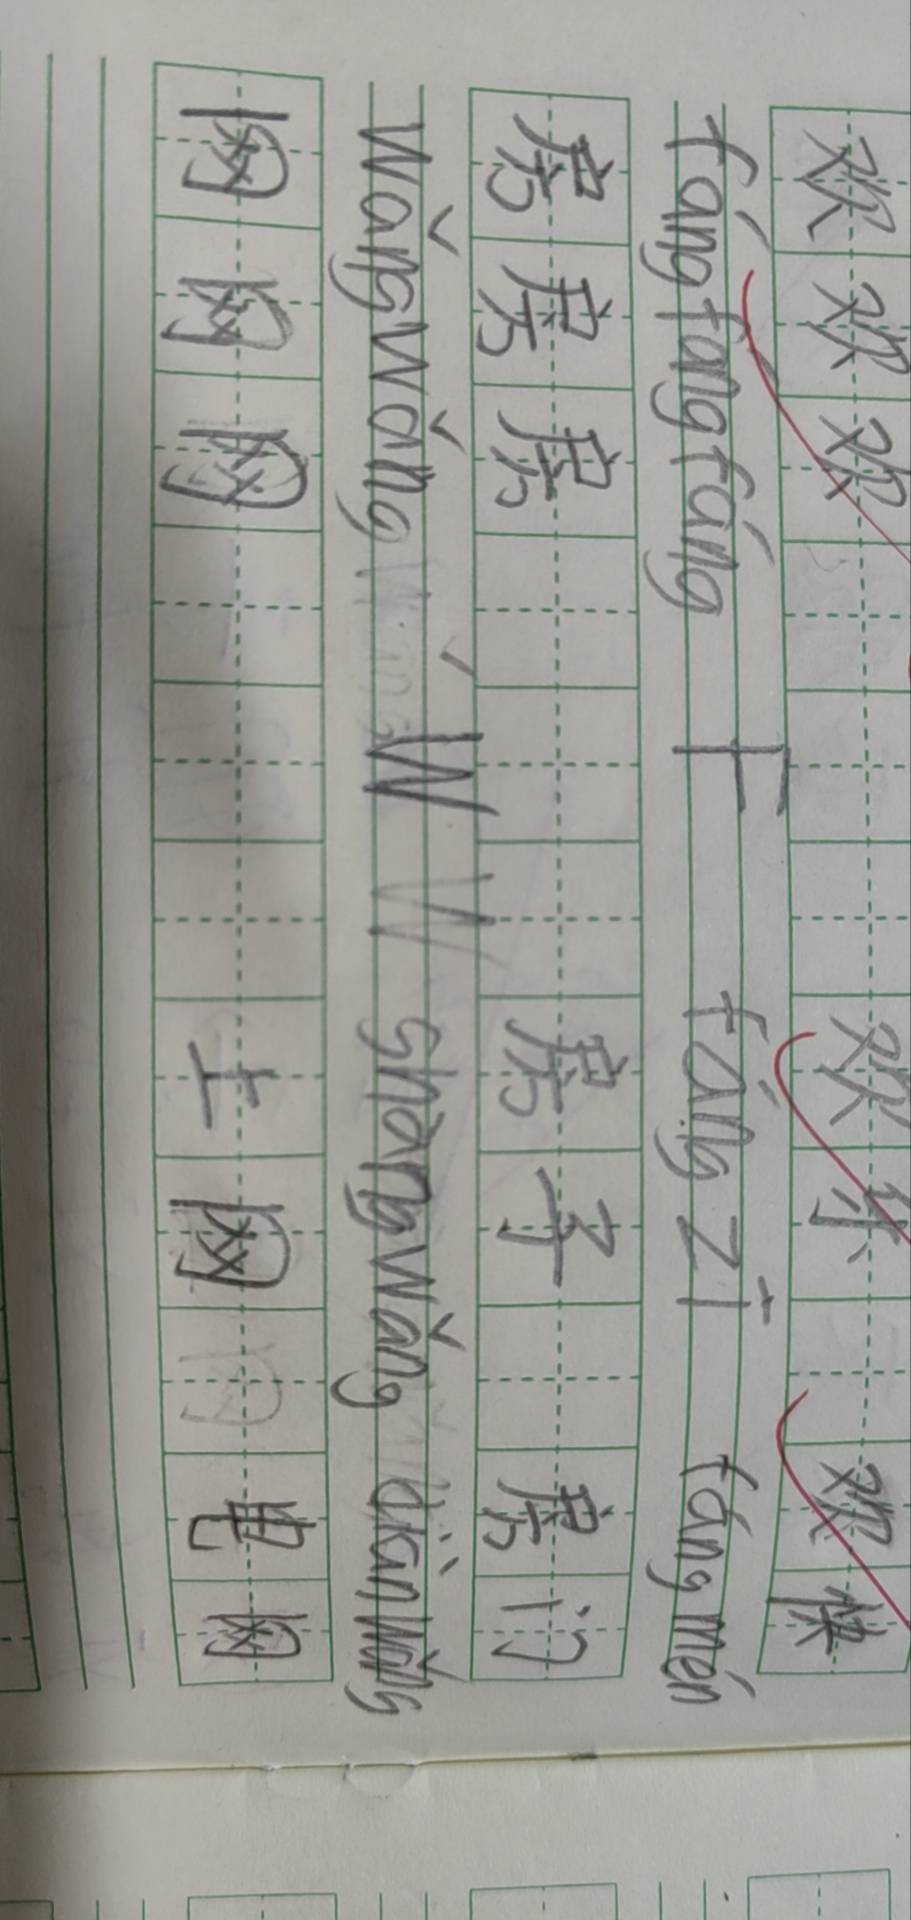 欢 欢 欢 欢 乐 欢 快
fáng fáng fáng F fáng zi fáng mén
房 房 房 房 子 房 门
wǎng wǎng W W shàng wǎng diàn wǎng
网 网 网 上 网 电 网